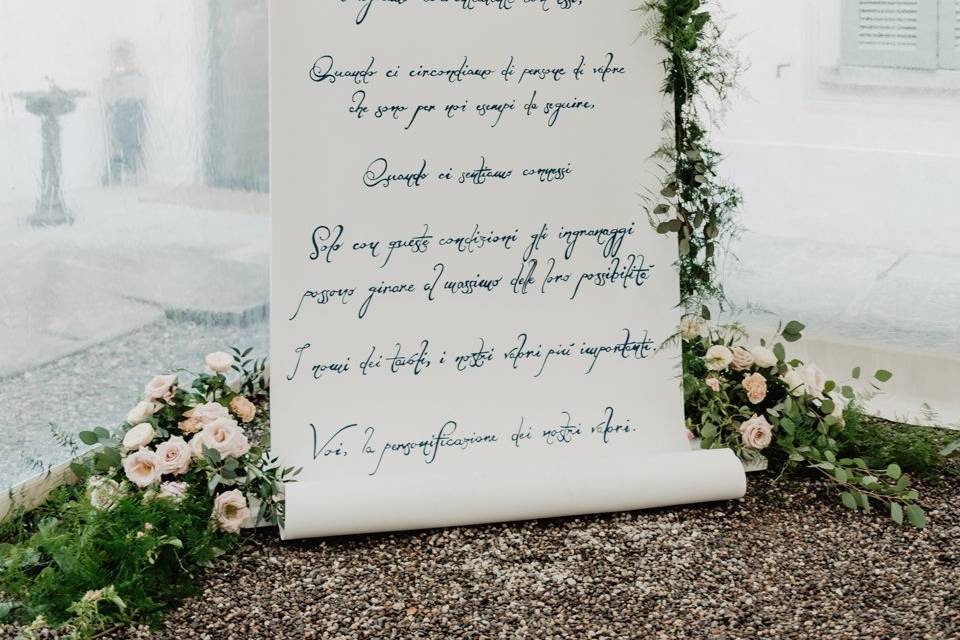 con essi,
Quando ci circondiamo di persone di valore
che sono per noi esempi da seguire,
Quando ci sentiamo connessi
Solo con queste condizioni gli ingranaggi
possono girare al massimo delle loro possibilità
I nomi dei tavoli, i nostri valori più importanti.
Voi, la personificazione dei nostri valori.